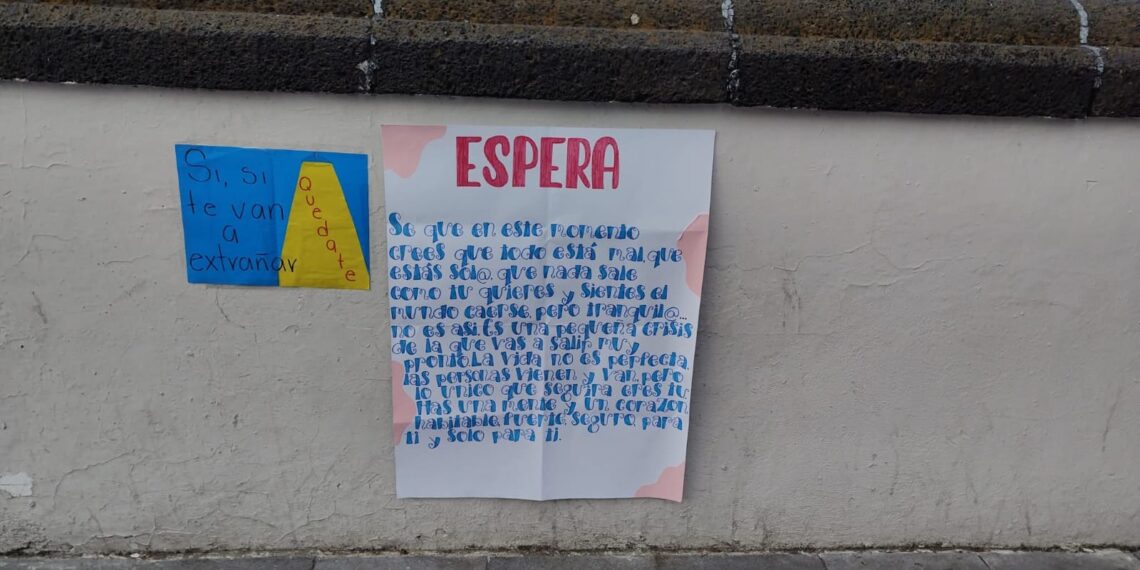 Si, si
te van
a
extrañar
Quedate
ESPERA
Se que en este momento
crees que todo está mal, que
estás sól@, que nada sale
como tu quieres y sientes el
mundo caerse, pero tranquil@...
no es asi. Es una pequeña crisis
de la que vas a salir muy
pronto. La vida no es perfecta,
las personas vienen y van, pero
lo único que seguira eres tu
Has una mente y un corazón
habitable, fuerte, seguro, para
ti y solo para ti.